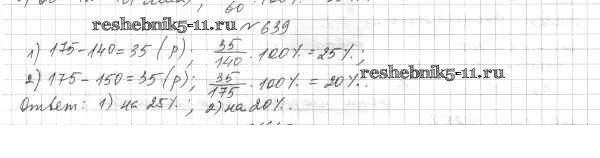 60
reshebnik5-11.ru № 639
1) 175-140=35 (р); 35/140 · 100% = 25%;
2) 175-150=35 (р); 35/175 · 100% = 20%. reshebnik5-11.ru
Ответ: 1) на 25%; 2) на 20%.